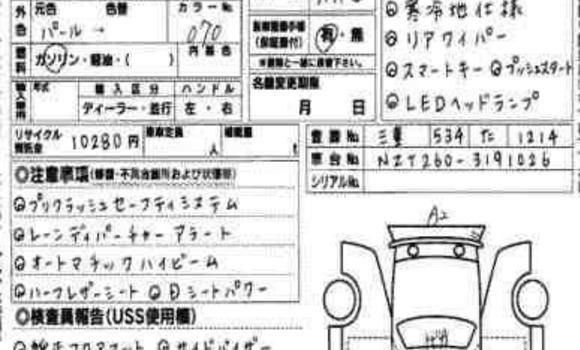 外色 元色 色替 カラーNo.
パール → 070
燃料 ガソリン・軽油・( ) 内装色
年式 輸入区分 ハンドル
ディーラー・並行 左・右
(保証書付) 有・無
名義変更期限
月 日
◎寒冷地仕様
◎リアワイパー
◎スマートキー ◎プッシュスタート
◎LEDヘッドランプ
リサイクル預託金 10280円 乗車定員 人 積載量 t
登録No. 三重 534 た 1214
車台No. NZT260-3191026
シリアルNo.
◎注意事項(修復・不具合箇所および状態等)
◎プリクラッシュセーフティシステム
◎レーンディパーチャーアラート
◎オートマチックハイビーム
◎ハーフレザーシート ◎Dシートパワー
A2
◎検査員報告(USS使用欄)
◎純正フロアマット ◎サイドバイザー